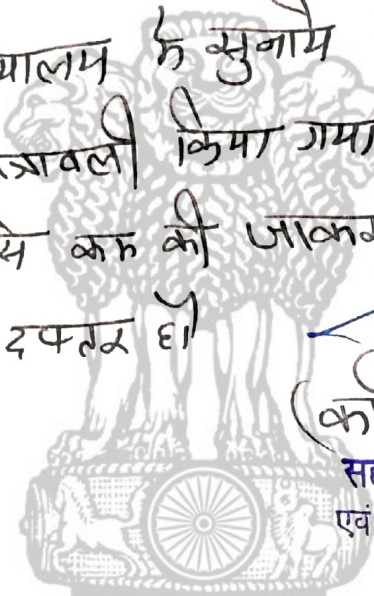 यालय में सुनाय
त्रावली किया गया
से कम की जाकर
दफ्तर हो
(का
सह
एवं